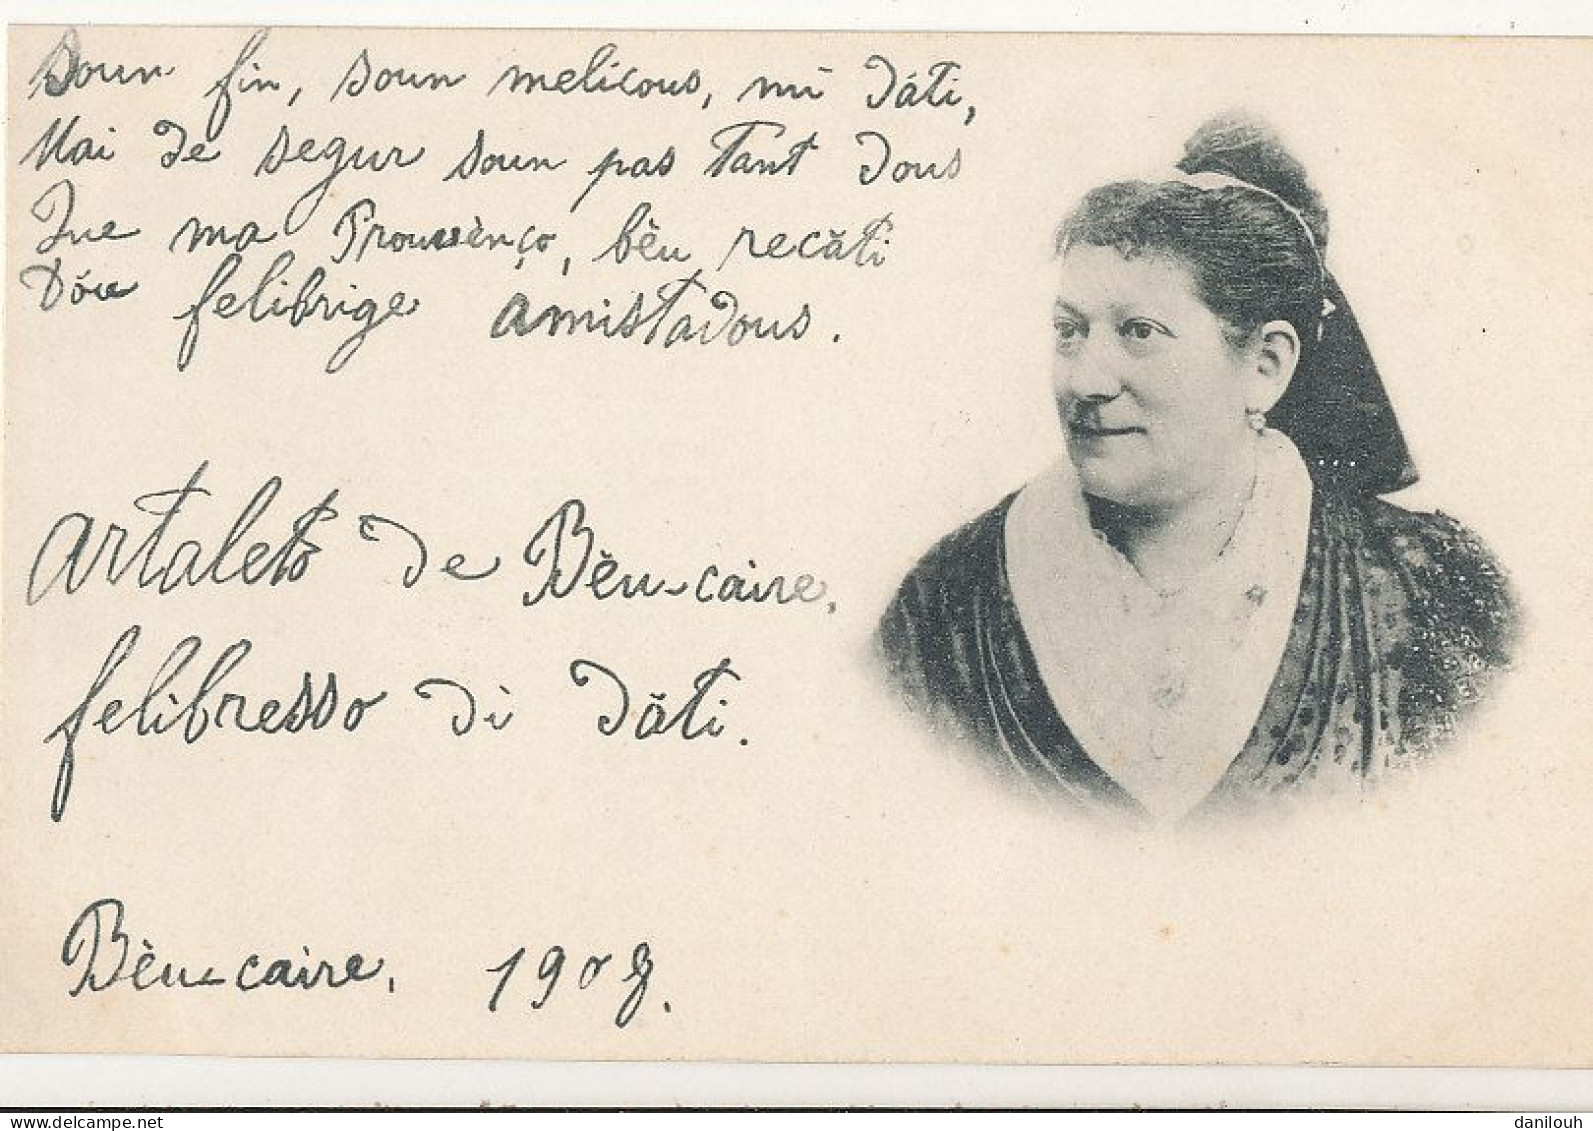 Soun fin, soun melicous, mi dàti,
Mai de segur soun pas tant dous
Que ma Prouvènço, bèu recàti
Dóu felibrige amistadous.
Artaleto de Bèu-caire,
felibresso di dàti.
Bèu-caire, 1908.
danilouh